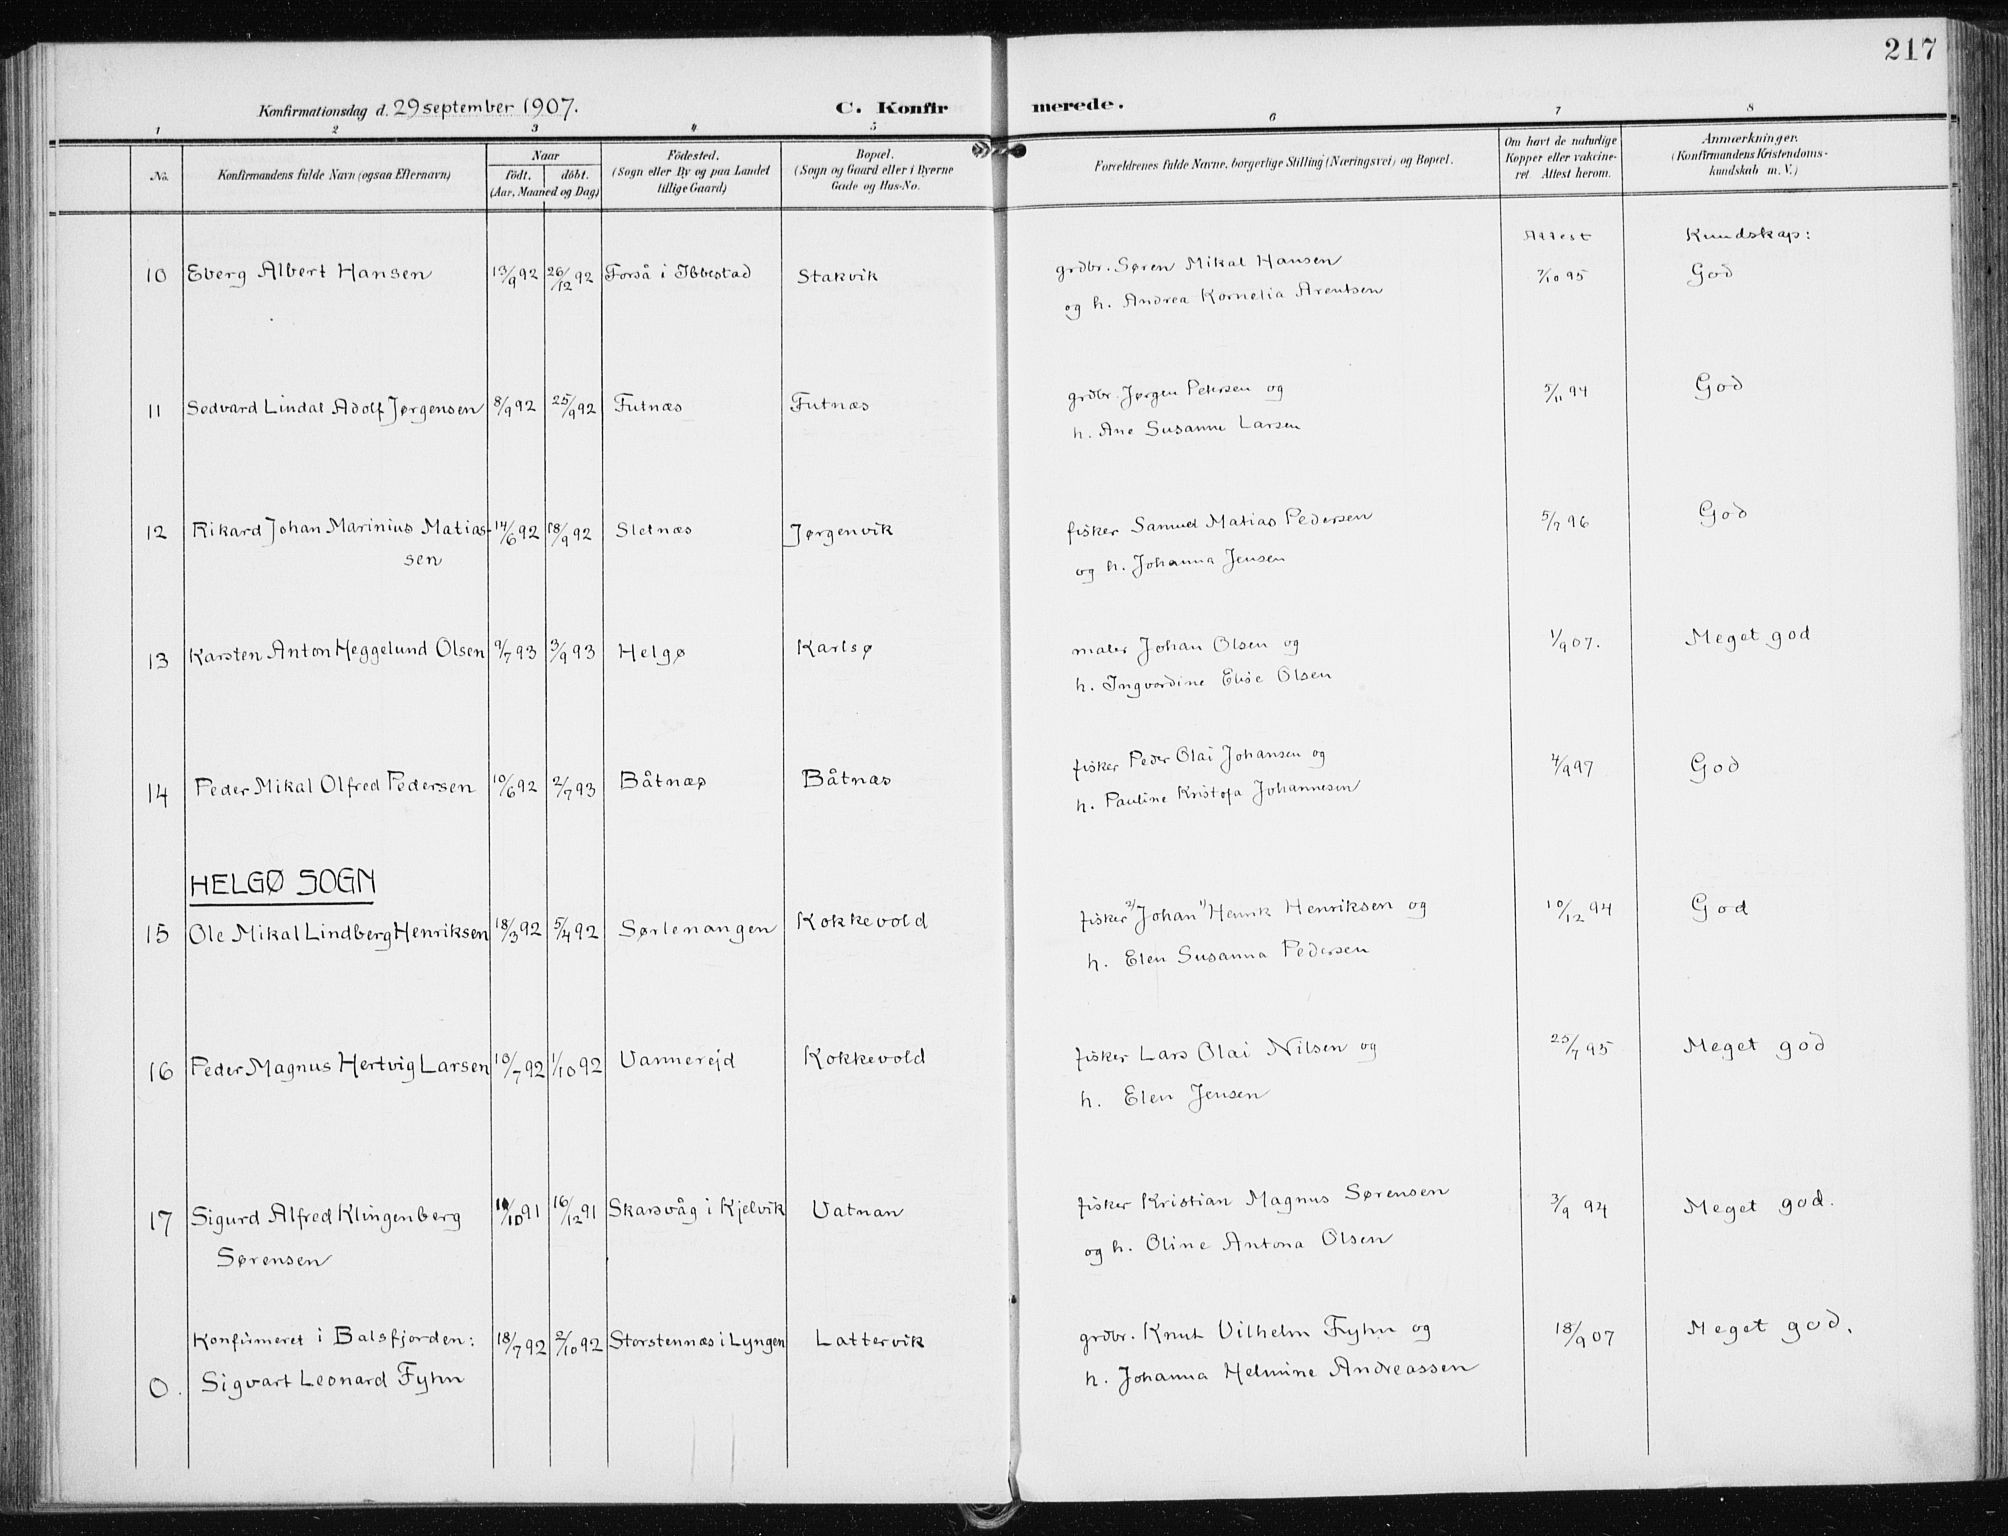 217
Konfirmationsdag d. 29 september 1907. C. Konfirmerede.
1 2 3 4 5 6 7 8
No. Konfirmandens fulde Navn (ogsaa Efternavn) Naar født. døbt. (Aar, Maaned og Dag) Fødested. (Sogn eller By og paa Landet tillige Gaard) Bopæl. (Sogn og Gaard eller i Byerne Gade og Hus-No. Forældrenes fulde Navne, borgerlige Stilling (Næringsvei) og Bopæl. Om havt de naturlige Kopper eller vakcineret. Attest herom. Anmærkninger. (Konfirmandens Kristendomskundskab m. V.)
Attest Kundskap:
10 Eberg Albert Hansen 13/9 92 26/12 92 Forså i Ibbestad Stakvik grdbr. Søren Mikal Hansen 7/10 95 God
og h. Andrea Kornelia Arentsen
11 Sedvard Lindal Adolf Jørgensen 8/9 92 25/9 92 Futnæs Futnæs grdbr. Jørgen Petersen og 5/11 94 God
h. Ane Susanne Larsen
12 Rikard Johan Marinius Matias- 14/6 92 18/9 92 Sletnæs Jørgenvik fisker Samuel Matias Pedersen 5/7 96 God
sen og h. Johanna Jensen
13 Karsten Anton Heggelund Olsen 9/7 93 3/9 93 Helgø Karlsø maler Johan Olsen og 1/9 07. Meget god
h. Ingvardine Elise Olsen
14 Peder Mikal Olfred Pedersen 10/6 92 2/7 93 Båtnæs Båtnæs fisker Peder Olai Johansen og 4/9 97 God
h. Pauline Kristofa Johannesen
HELGØ SOGN
15 Ole Mikal Lindberg Henriksen 18/3 92 5/4 92 Sørlenangen Kokkevold fisker 2/ Johan 1/ Henrik Henriksen og 10/12 94 God
h. Elen Susanna Pedersen
16 Peder Magnus Hertvig Larsen 10/7 92 1/10 92 Vannerejd Kokkevold fisker Lars Olai Nilsen og 25/7 95 Meget god
h. Elen Jensen
17 Sigurd Alfred Klingenberg /10 91 16/12 91 Skarsvåg i Kjelvik Vatnan fisker Kristian Magnus Sørensen 3/9 94 Meget god.
Sørensen og h. Oline Antona Olsen
Konfirmeret i Balsfjorden: 18/7 92 2/10 92 Storstennæs i Lyngen Lattervik grdbr. Knut Vilhelm Fyhn og 18/9 07 Meget god.
0. Sigvart Leonard Fyhn h. Johanna Helmine Andreassen